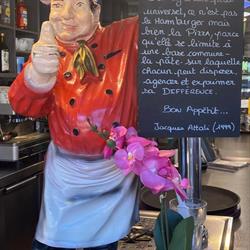 universel, ce n'est pas
le Hamburger mais
bien la Pizza, parce
qu'elle se limite à
une base commune
la pâte - sur laquelle
chacun peut disposer,
agencer et exprimer
sa DIFFÉRENCE.
Bon Appétit...
Jacques Attali (1999)